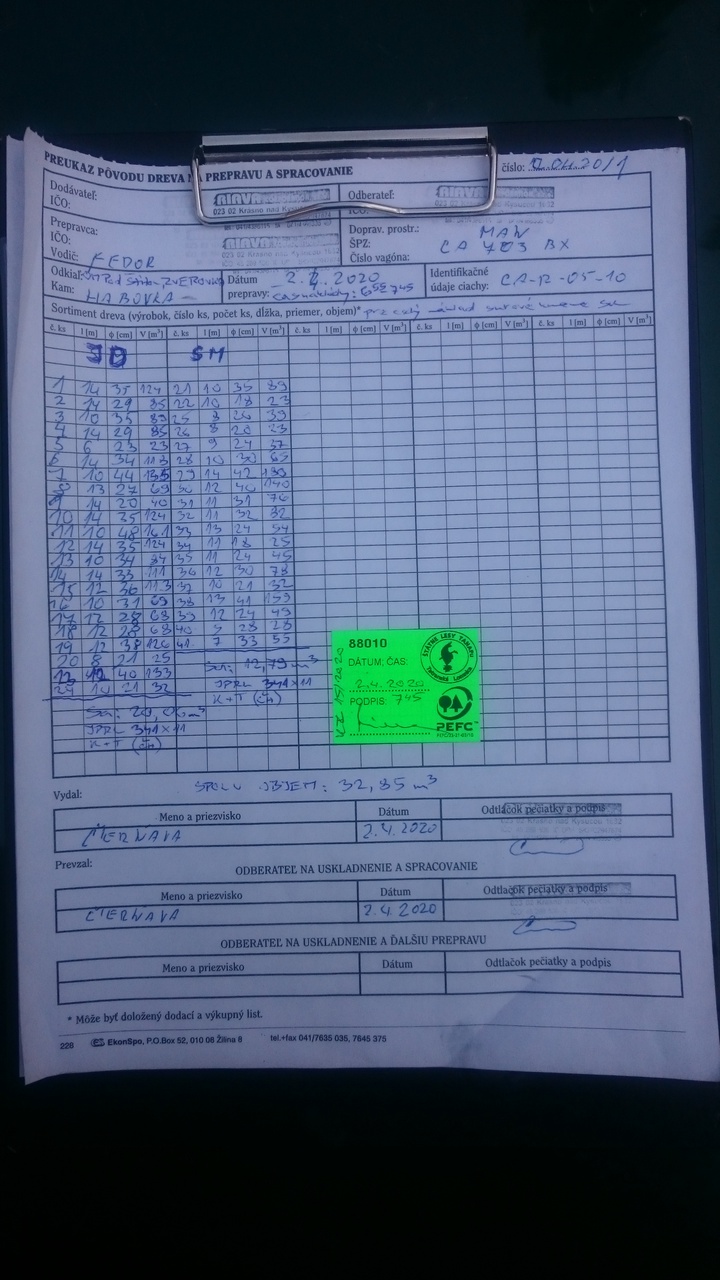 PREUKAZ PÔVODU DREVA NA PREPRAVU A SPRACOVANIE
číslo: 2.04.20/1
Dodávateľ:
IČO:
023 02 Krásno nad Kysucou
Odberateľ:
IČO:
Prepravca:
IČO:
Vodič: FEDOR
Doprav. prostr.: MAN
ŠPZ: CA 703 BX
Číslo vagóna:
Odkiaľ:
Kam: HABOVKA
Dátum 2.4.2020
prepravy:
Identifikačné
údaje ciachy: CA-R-05-10
Sortiment dreva (výrobok, číslo ks, počet ks, dĺžka, priemer, objem)*
č. ks l [m] φ [cm] V [m³] č. ks l [m] φ [cm] V [m³] č. ks l [m] φ [cm] V [m³] č. ks l [m] φ [cm] V [m³] č. ks l [m] φ [cm] V [m³]
JD SM
1 14 35 124 21 10 35 89
2 14 29 85 22 10 18 23
3 10 35 89 25 8 26 39
4 14 29 85 26 8 20 23
5 6 23 23 27 9 24 37
6 14 34 113 28 10 30 65
7 10 44 135 29 14 42 189
8 13 27 69 30 12 40 140
9 14 20 40 31 11 31 76
10 14 35 124 32 11 32 82
11 10 48 161 33 13 24 54
12 14 35 124 34 11 18 25
13 10 34 84 35 11 24 45
14 14 33 111 36 12 30 78
15 12 36 113 37 10 21 32
16 10 31 69 38 13 41 159
17 12 28 68 39 12 24 49
18 12 28 68 40 5 28 28
19 12 38 126 41 7 33 55
20 8 21 25
40 133
24 10 21 32
12,79 m³
JPRL 341X11
K+T (čn)
20,06 m³
JPRL 341X11
K+T (čn)
88010
DÁTUM; ČAS:
2.4.2020
PODPIS: 745
ŠTÁTNE LESY TANAPU
Tatranská Lomnica
PEFC
SPOLU OBJEM: 32,85 m³
Vydal:
Meno a priezvisko Dátum Odtlačok pečiatky a podpis
ČIERŇAVA 2.4.2020
Prevzal:
ODBERATEĽ NA USKLADNENIE A SPRACOVANIE
Meno a priezvisko Dátum Odtlačok pečiatky a podpis
ČIERŇAVA 2.4.2020
ODBERATEĽ NA USKLADNENIE A ĎALŠIU PREPRAVU
Meno a priezvisko Dátum Odtlačok pečiatky a podpis
* Môže byť doložený dodací a výkupný list.
228 EkonSpo, P.O.Box 52, 010 08 Žilina 8 tel.+fax 041/7635 035, 7645 375